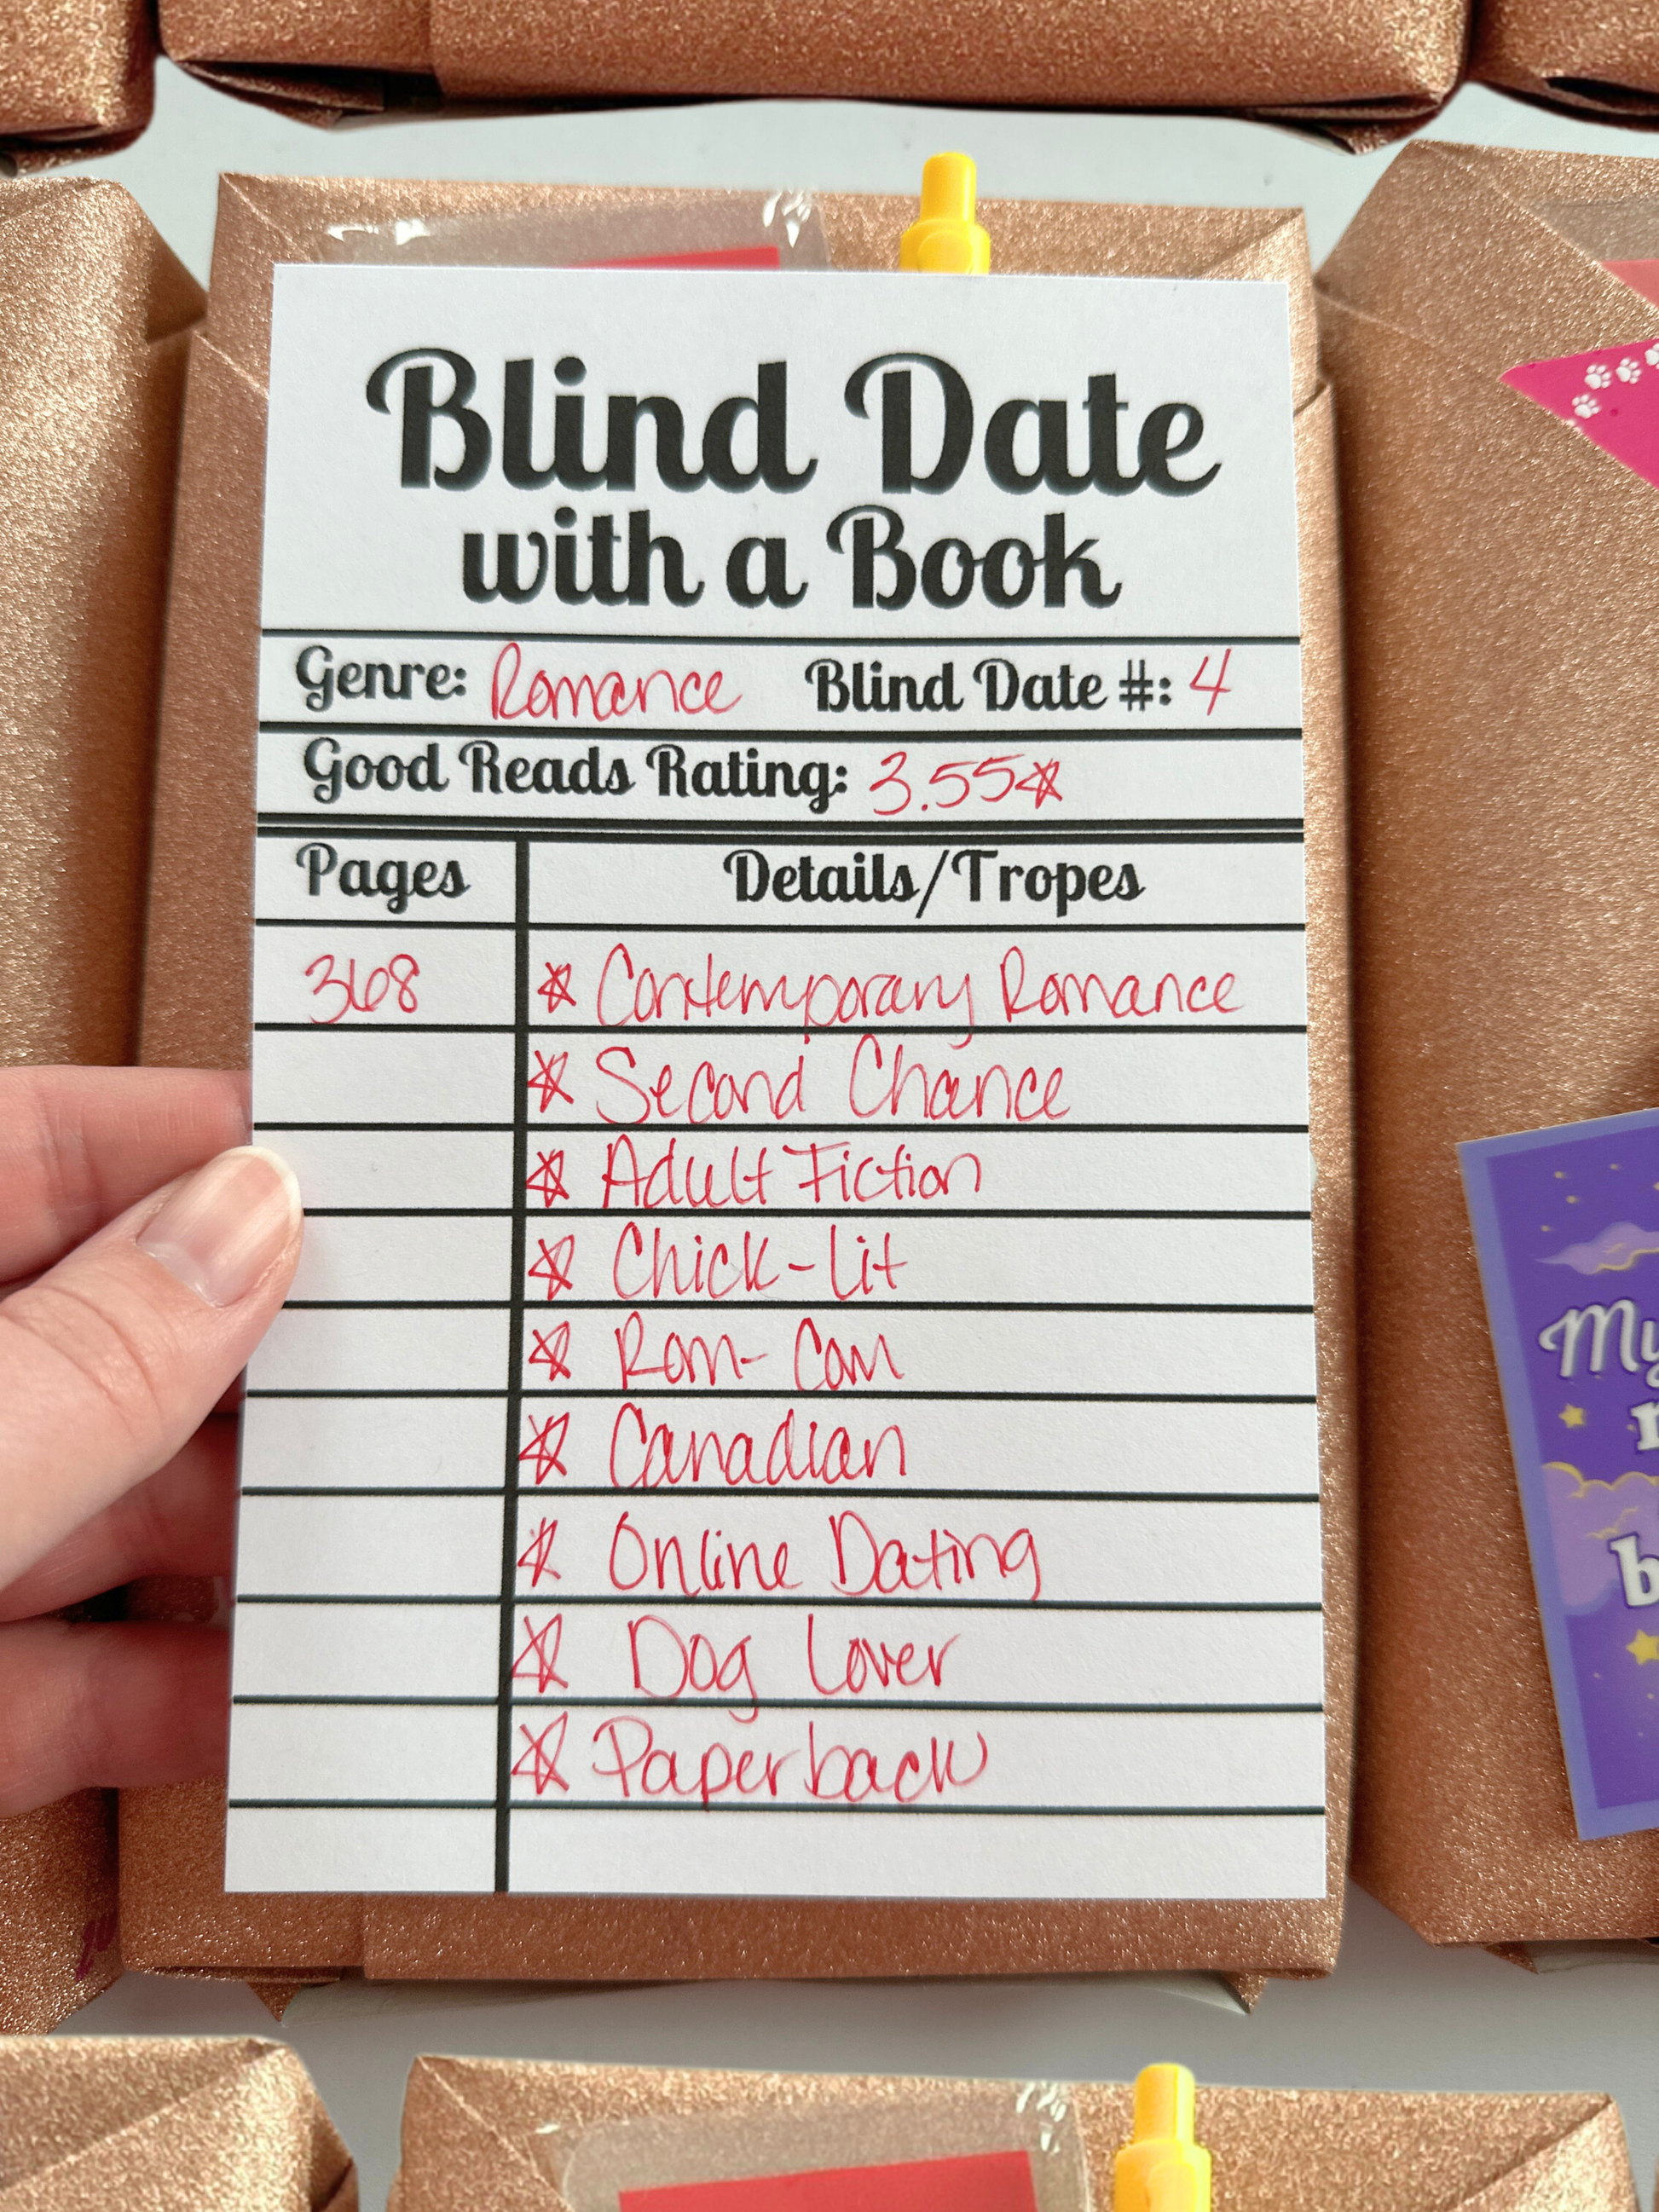 Blind Date
with a Book
Genre: Romance Blind Date #: 4
Good Reads Rating: 3.55☆
Pages Details/Tropes
368 ☆ Contemporary Romance
☆ Second Chance
☆ Adult Fiction
☆ Chick-Lit
☆ Rom-Com
☆ Canadian
☆ Online Dating
☆ Dog Lover
☆ Paperback
My
b